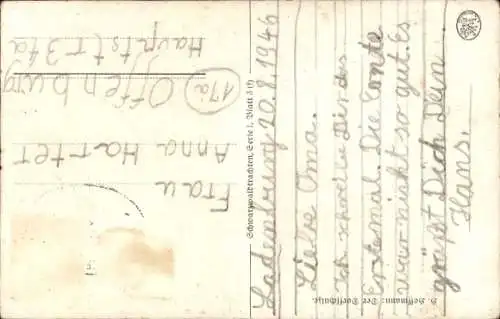 Ladenburg 20.8.1946
Liebe Oma.
Ich schreibe Dir das
Erstemal. Die Ernte
war nicht so gut. Es
grüßt Dich Dein
Hans.
H. Hoffmann: Der Dorfschulze.
Schwarzwaldtrachten, Serie I, Blatt 3 (f)
Frau
Anna Harter
(17a) Offenburg
Hauptstr 31a